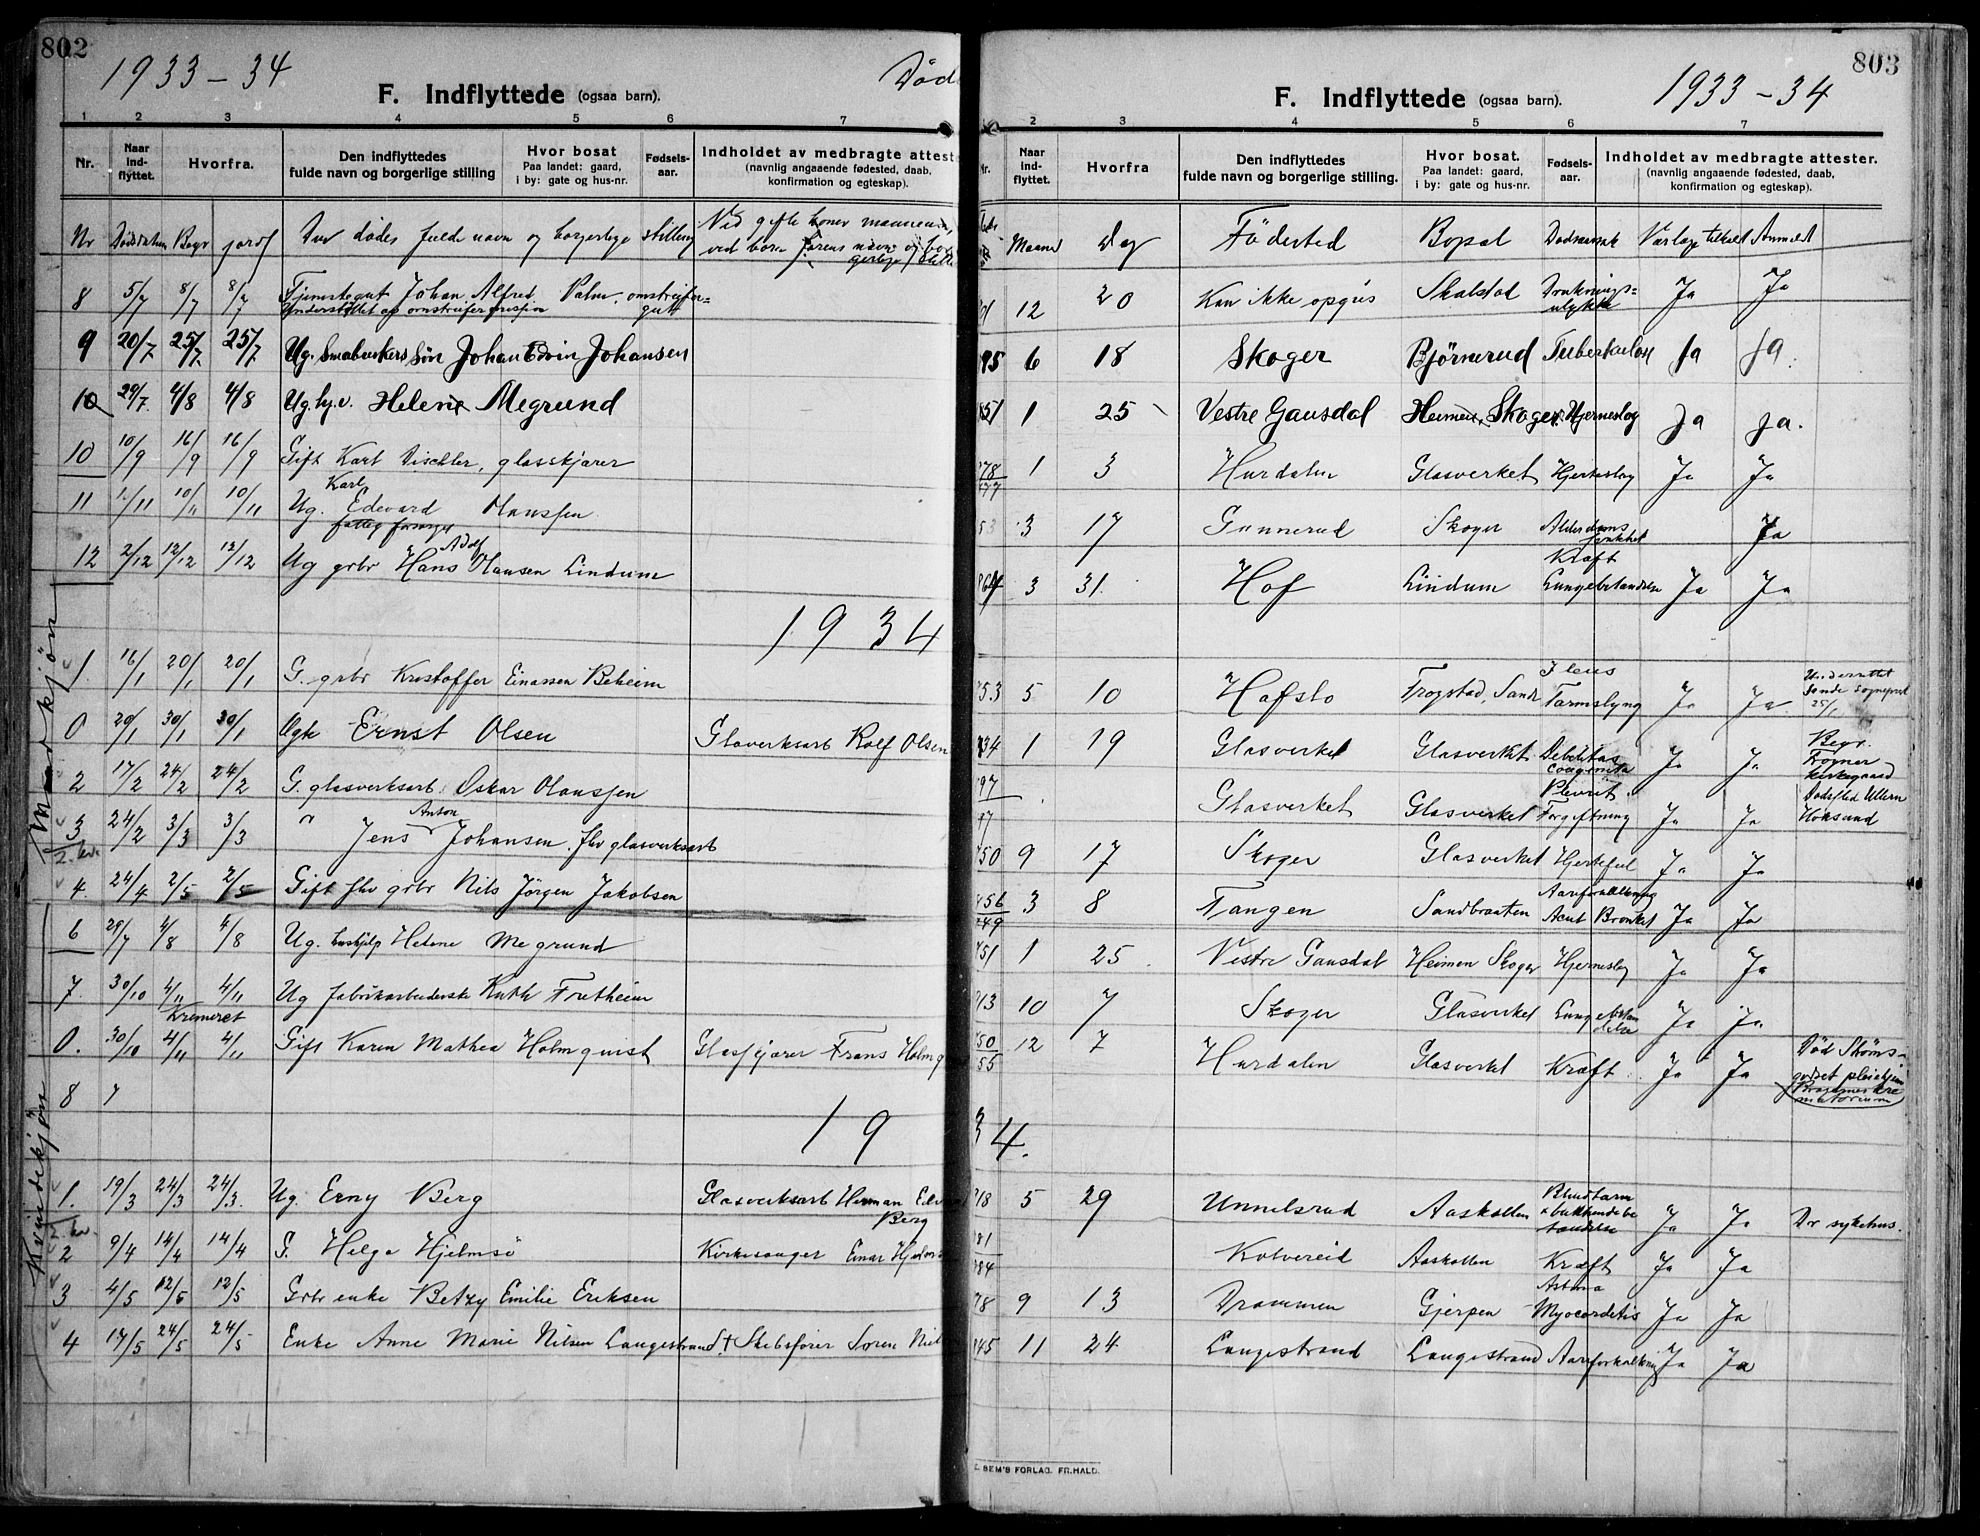 802
1933-34
Død
F. Indflyttede (ogsaa barn).
1 2 3 4 5 6 7
Nr. Naar ind-flyttet. Hvorfra. Den indflyttedes fulde navn og borgerlige stilling Hvor bosat Paa landet: gaard, i by: gate og hus-nr. Fødsels-aar. Indholdet av medbragte attester (navnlig angaaende fødested, daab, konfirmation og egteskap).
Nr Dødsdatum Begr jordf Den dødes fulde navn og borgerlige stilling Ved gifte koner mannens, ved born farens navn og bor
gerlige stilli
8 5/7 8/7 8/7 Tjenestegut Johan Alfred omstreifer=
Understøttet av omstreifer gutt
9 20/7 25/7 25/7 Ug. Småbrukers søn Johan Edvin Johansen
10 29/7. 4/8 4/8 Ug. hj.v. Helene Megrund
10 10/9 16/9 16/9 Gift Karl Dischler, glasskjærer
Karl
11 1/11 10/11 10/11 Ug. Edevard Hanssen
Adolf
12 2/12 12/12 12/12 Ug grbr Hans Hansen Lindum
1934
Mandkjøn
1. 16/1 20/1 20/1 G. grbr Kristoffer Einarsen Beheim
0 20/1 30/1 30/1 Ernst Olsen Glasverksarb Rolf Olsen
2 17/2 24/2 24/2 G. glasverksarb. Oskar Hanssen
Anton
3 24/2 3/3 3/3 " Jens Johansen. fhv glasverksarb
2. kv.
4. 24/4 2/5 2/5 Gift fhv grbr Nils Jörgen Jakobsen
6 29/7 4/8 4/8 Ug. hushjelp Helene Megrund
7. 30/10 4/11 4/11 Ug fabrikarbeiderske Ruth Fretheim
Kremeret
0. 30/10 4/11 4/11 Gift Karen Mathea Holmqvist Glasskjærer Frans Holmq
8
19
Kvindekjøn
1. 19/3 24/3 24/3. Ug. Erny Berg Glasverksarb Herman
Berg
2. kv.
2 9/4 14/4 14/4 Helga Hjelmsö Kirkesanger Einar
3 4/5 12/5 12/5 Grbr enke Betzy Emilie Eriksen
4 17/5 24/5 24/5 Enke Anne Marie Nilsen Langestrand. + Skibsfører Sören Nil
803
F. Indflyttede (ogsaa barn).
1933-34
2 3 4 5 6 7
Nr. Naar ind-flyttet. Hvorfra Den indflyttedes fulde navn og borgerlige stilling. Hvor bosat. Paa landet: gaard, i by: gate og hus-nr. Fødsels-aar. Indholdet av medbragte attester. (navnlig angaaende fødested, daab, konfirmation og egteskap).
Maaned Dag Födested Bopæl Dødsaarsak Værlæge tilkalt Anmeldt
12 20 Kan ikke opgis Drukningsulykke Ja Ja
95 6 18 Skoger Bjørnerud Tuberkulose Ja Ja.
1 25 Vestre Gausdal Heimen, Skoger. Hjerneslag Ja Ja.
78
1 3 Hurdalen Glasverket Hjerteslag Ja Ja
53 3 17 Gunnerud Skoger Alderdoms Ja
Kræft
64 3 31. Hof Lindum Lungebetændelse Ja Ja
53 5 10 Hofslo Frogstad, Sande Ileus
Tarmslyng Ja Ja Underrettet Sande sogneprest 25/1
34 1 19 Glasverket Glasverket Debilitas congenita Ja Ja Begr. Fogner kirkegaard
97 Glasverket Glasverket Plevrit. Forgiftning Ja Ja Dødssted Ullern Hoksund
50 9 17 Skoger Glasverket Hjertefeil Ja Ja
56 3 8 Tangen Sandbraaten Aareforkalkning
Acut Bronkit Ja Ja
51 1 25 Vestre Gausdal Heimen Skoger Hjerneslag Ja Ja
13 10 7 Skoger Glasverket Lungebetændelse Ja Ja
50
55 12 7 Hurdalen Glasverket Kræft Ja Ja Død Strömsgodset pleiehjem
34.
18 5 29 Unnelsrud Aaskollen Blindtarm + bukhindebetændelse Ja Ja Dr sykehus.
81
84 Kolvereid Aaskollen Kræft Ja Ja
78 9 13 Drammen Gjerpen Astma
Myocarditis Ja Ja
45 11 24 Langestrand Langestrand Aareforkalkning Ja Ja
SEM'S FORLAG. FR.HALD.